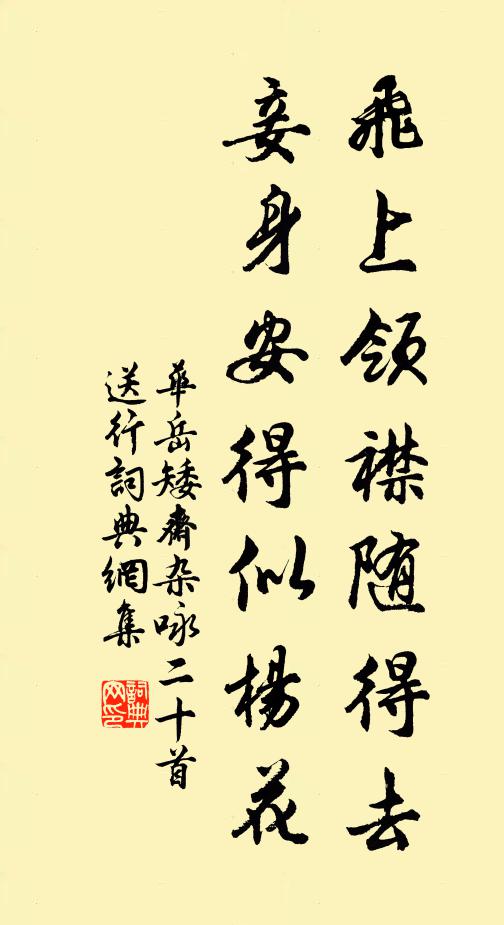 飛上領襟随得去
妾身安得似楊花
華岳矮齋杂咏二十首
送行詞典網集
詞典
网印